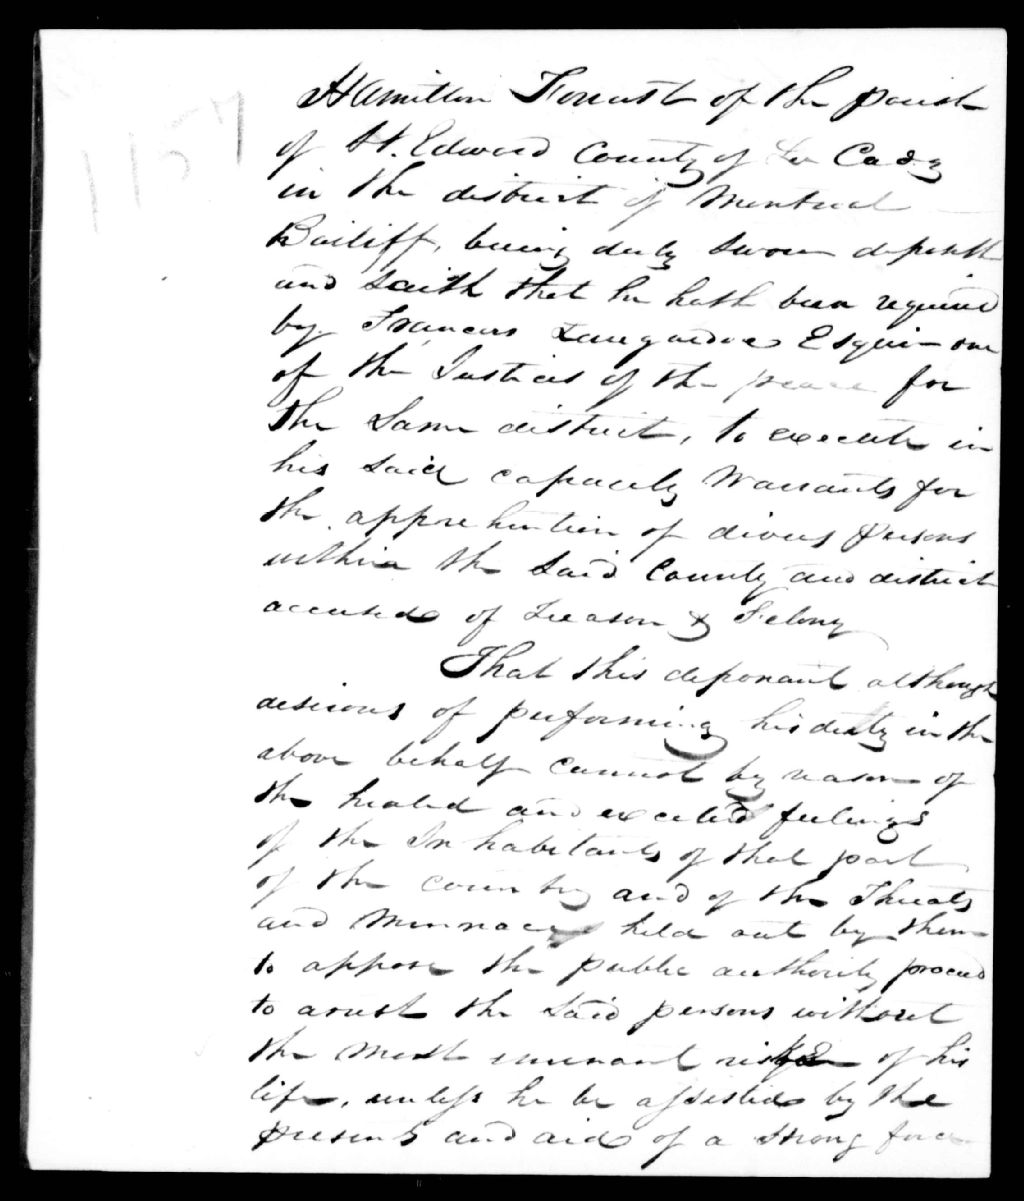 1157
Hamilton Forrest of the parish
of St. Edward County of La Cady
in the district of Montreal
Bailiff, being duly sworn deposeth
and saith that he hath been required
by Francois Languedoc Esquire one
of the Justices of the peace for
the Same district, to execute in
his said capacity Warrants for
the apprehention of divers persons
within the said County and district
accused of Treason & Felony
That this deponant although
desirous of performing his duty in the
above behalf cannot by reason of
the heated and excited feelings
of the Inhabitants of that part
of the country and of the Threats
and Mennaces held out by them
to appose the public authority proceed
to arrest the said persons without
the most imenant risk of his
life, unless he be assisted by the
presens and aid of a strong force